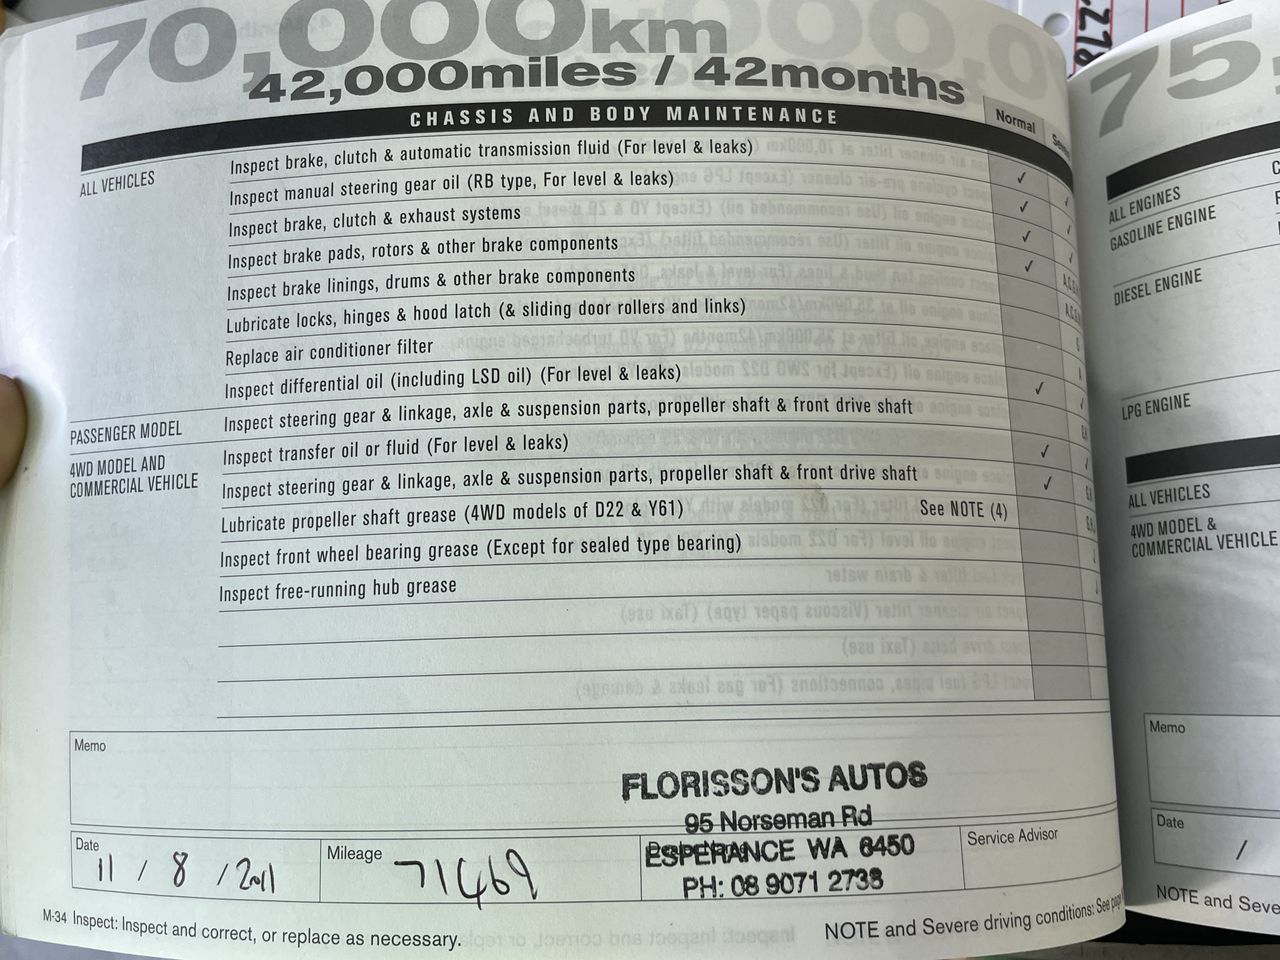 70,000km
42,000miles / 42months
CHASSIS AND BODY MAINTENANCE
Normal
ALL VEHICLES
Inspect brake, clutch & automatic transmission fluid (For level & leaks)
Inspect manual steering gear oil (RB type, For level & leaks) ✓
Inspect brake, clutch & exhaust systems ✓
Inspect brake pads, rotors & other brake components ✓
Inspect brake linings, drums & other brake components ✓
Lubricate locks, hinges & hood latch (& sliding door rollers and links)
Replace air conditioner filter
Inspect differential oil (including LSD oil) (For level & leaks) ✓
PASSENGER MODEL
Inspect steering gear & linkage, axle & suspension parts, propeller shaft & front drive shaft
4WD MODEL AND
COMMERCIAL VEHICLE
Inspect transfer oil or fluid (For level & leaks) ✓
Inspect steering gear & linkage, axle & suspension parts, propeller shaft & front drive shaft ✓
Lubricate propeller shaft grease (4WD models of D22 & Y61) See NOTE (4)
Inspect front wheel bearing grease (Except for sealed type bearing)
Inspect free-running hub grease
Memo
FLORISSON'S AUTOS
95 Norseman Rd
ESPERANCE WA 6450
PH: 08 9071 2738
Date
11 / 8 / 2011
Mileage
71469
Service Advisor
M-34 Inspect: Inspect and correct, or replace as necessary.
NOTE and Severe driving conditions: See
75,
ALL ENGINES
GASOLINE ENGINE
DIESEL ENGINE
LPG ENGINE
ALL VEHICLES
4WD MODEL &
COMMERCIAL VEHICLE
Memo
Date
/
NOTE and Seve